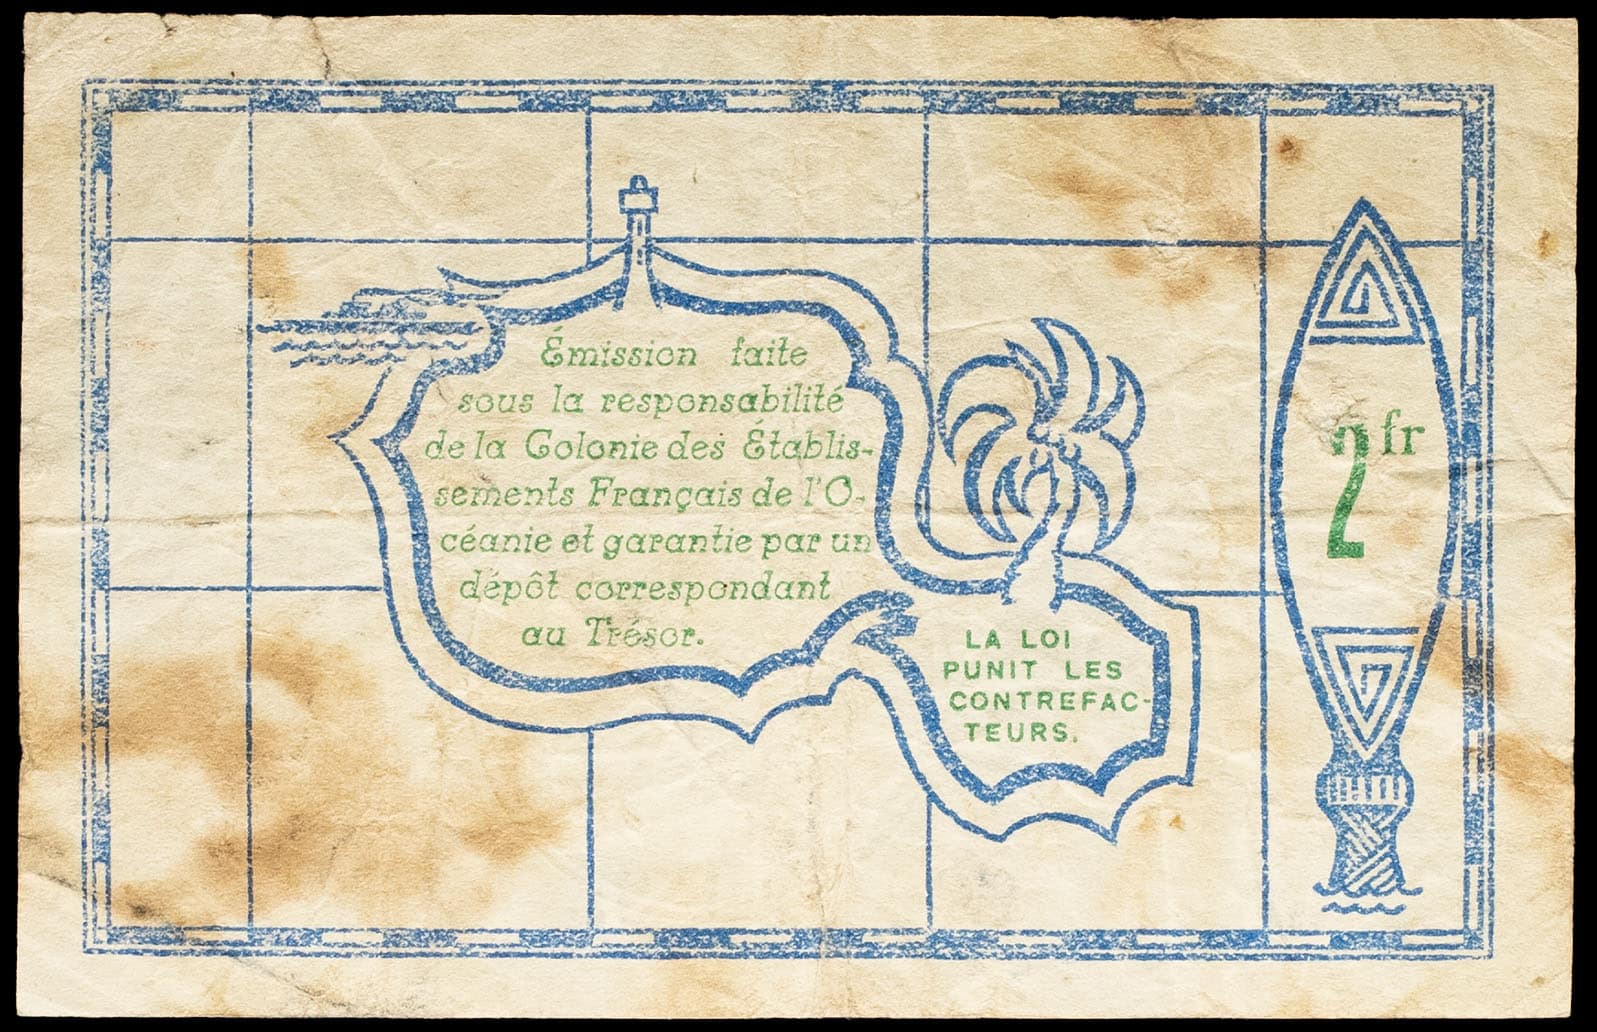 Émission faite
sous la responsabilité
de la Colonie des Établis-
sements Français de l'O-
céanie et garantie par un
dépôt correspondant
au Trésor.
LA LOI
PUNIT LES
CONTREFAC-
TEURS.
2 fr